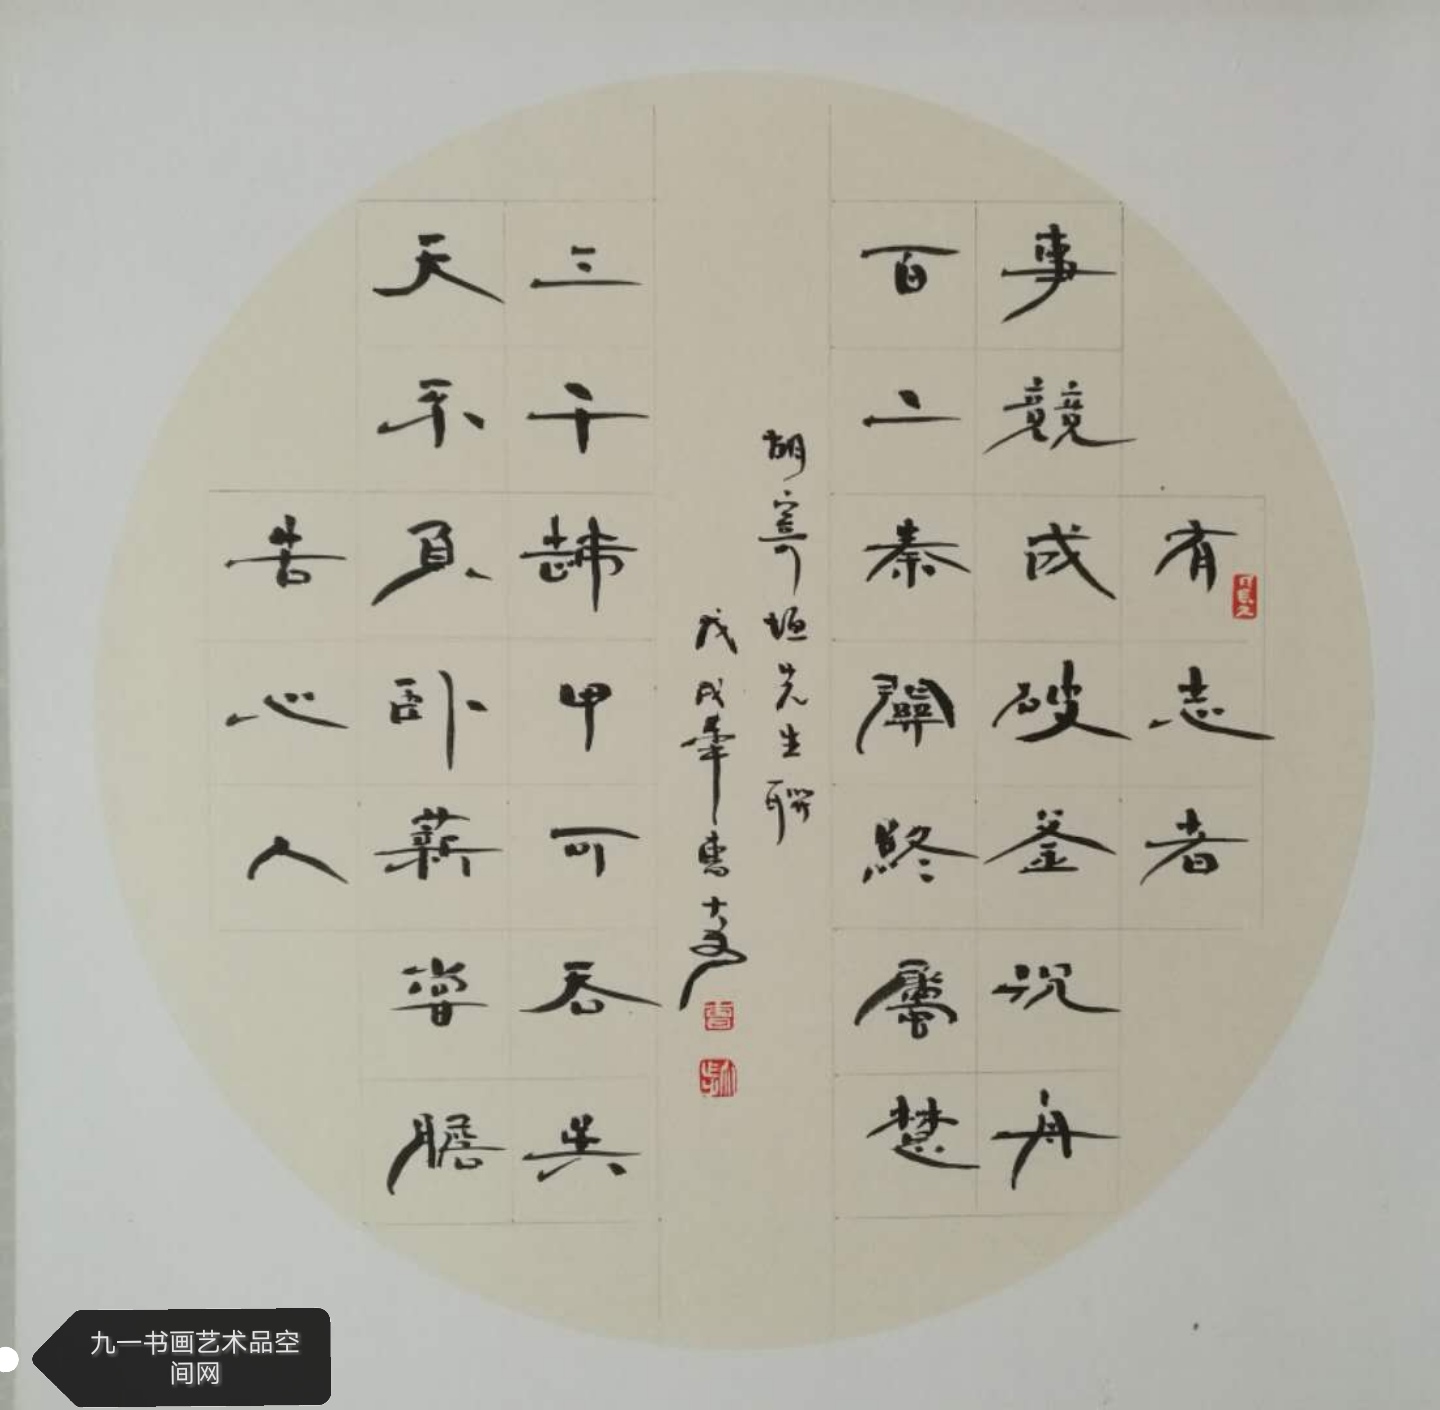 有志者
事競成破釜沉舟
百二秦關終屬楚
胡寄垣先生聯
戊戌
三千越甲可吞吳
天不負卧薪嘗膽
苦心人
九一书画艺术品空
间网